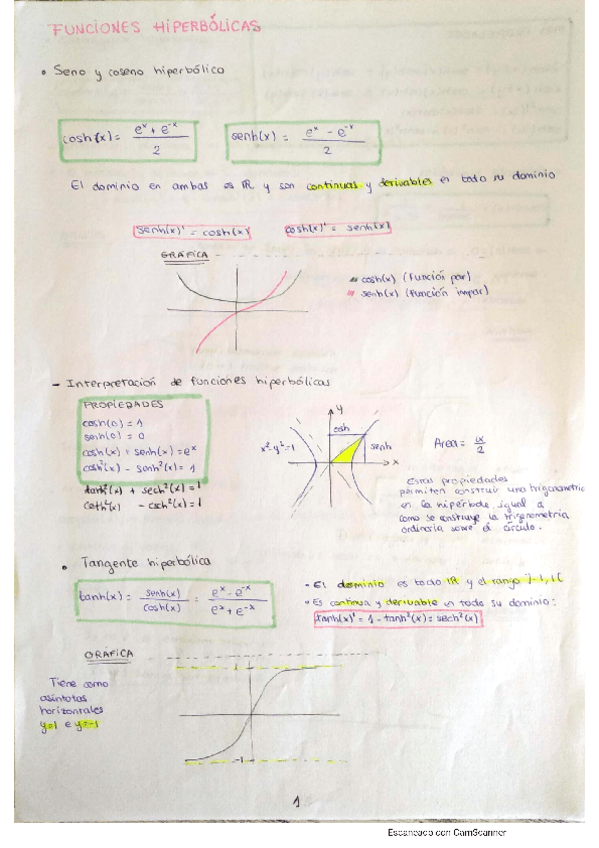 FUNCIONES HIPERBÓLICAS
• Seno y coseno hiperbólico
cosh(x) = (e^x + e^-x) / 2
senh(x) = (e^x - e^-x) / 2
El dominio en ambas es ℝ y son continuas y derivables en todo su dominio
senh(x)' = cosh(x)
cosh(x)' = senh(x)
GRÁFICA
cosh(x) (función par)
senh(x) (función impar)
- Interpretación de funciones hiperbólicas
PROPIEDADES
cosh(0) = 1
senh(0) = 0
cosh(x) + senh(x) = e^x
cosh²(x) - senh²(x) = 1
tanh²(x) + sech²(x) = 1
coth²(x) - csch²(x) = 1
y
cosh
x²-y²=1
senh
x
Area = α/2
Estas propiedades
permiten construir una trigonometría
en la hipérbole, igual a
como se construye la trigonometría
ordinaria sobre el círculo.
• Tangente hiperbólica
tanh(x) = senh(x) / cosh(x) = (e^x - e^-x) / (e^x + e^-x)
- El dominio es todo ℝ y el rango ]-1,1[
• Es continua y derivable en todo su dominio:
tanh(x)' = 1 - tanh²(x) = sech²(x)
GRAFICA
Tiene como
asíntotas
horizontales
y=1 e y=-1
-1
1
Escaneado con CamScanner